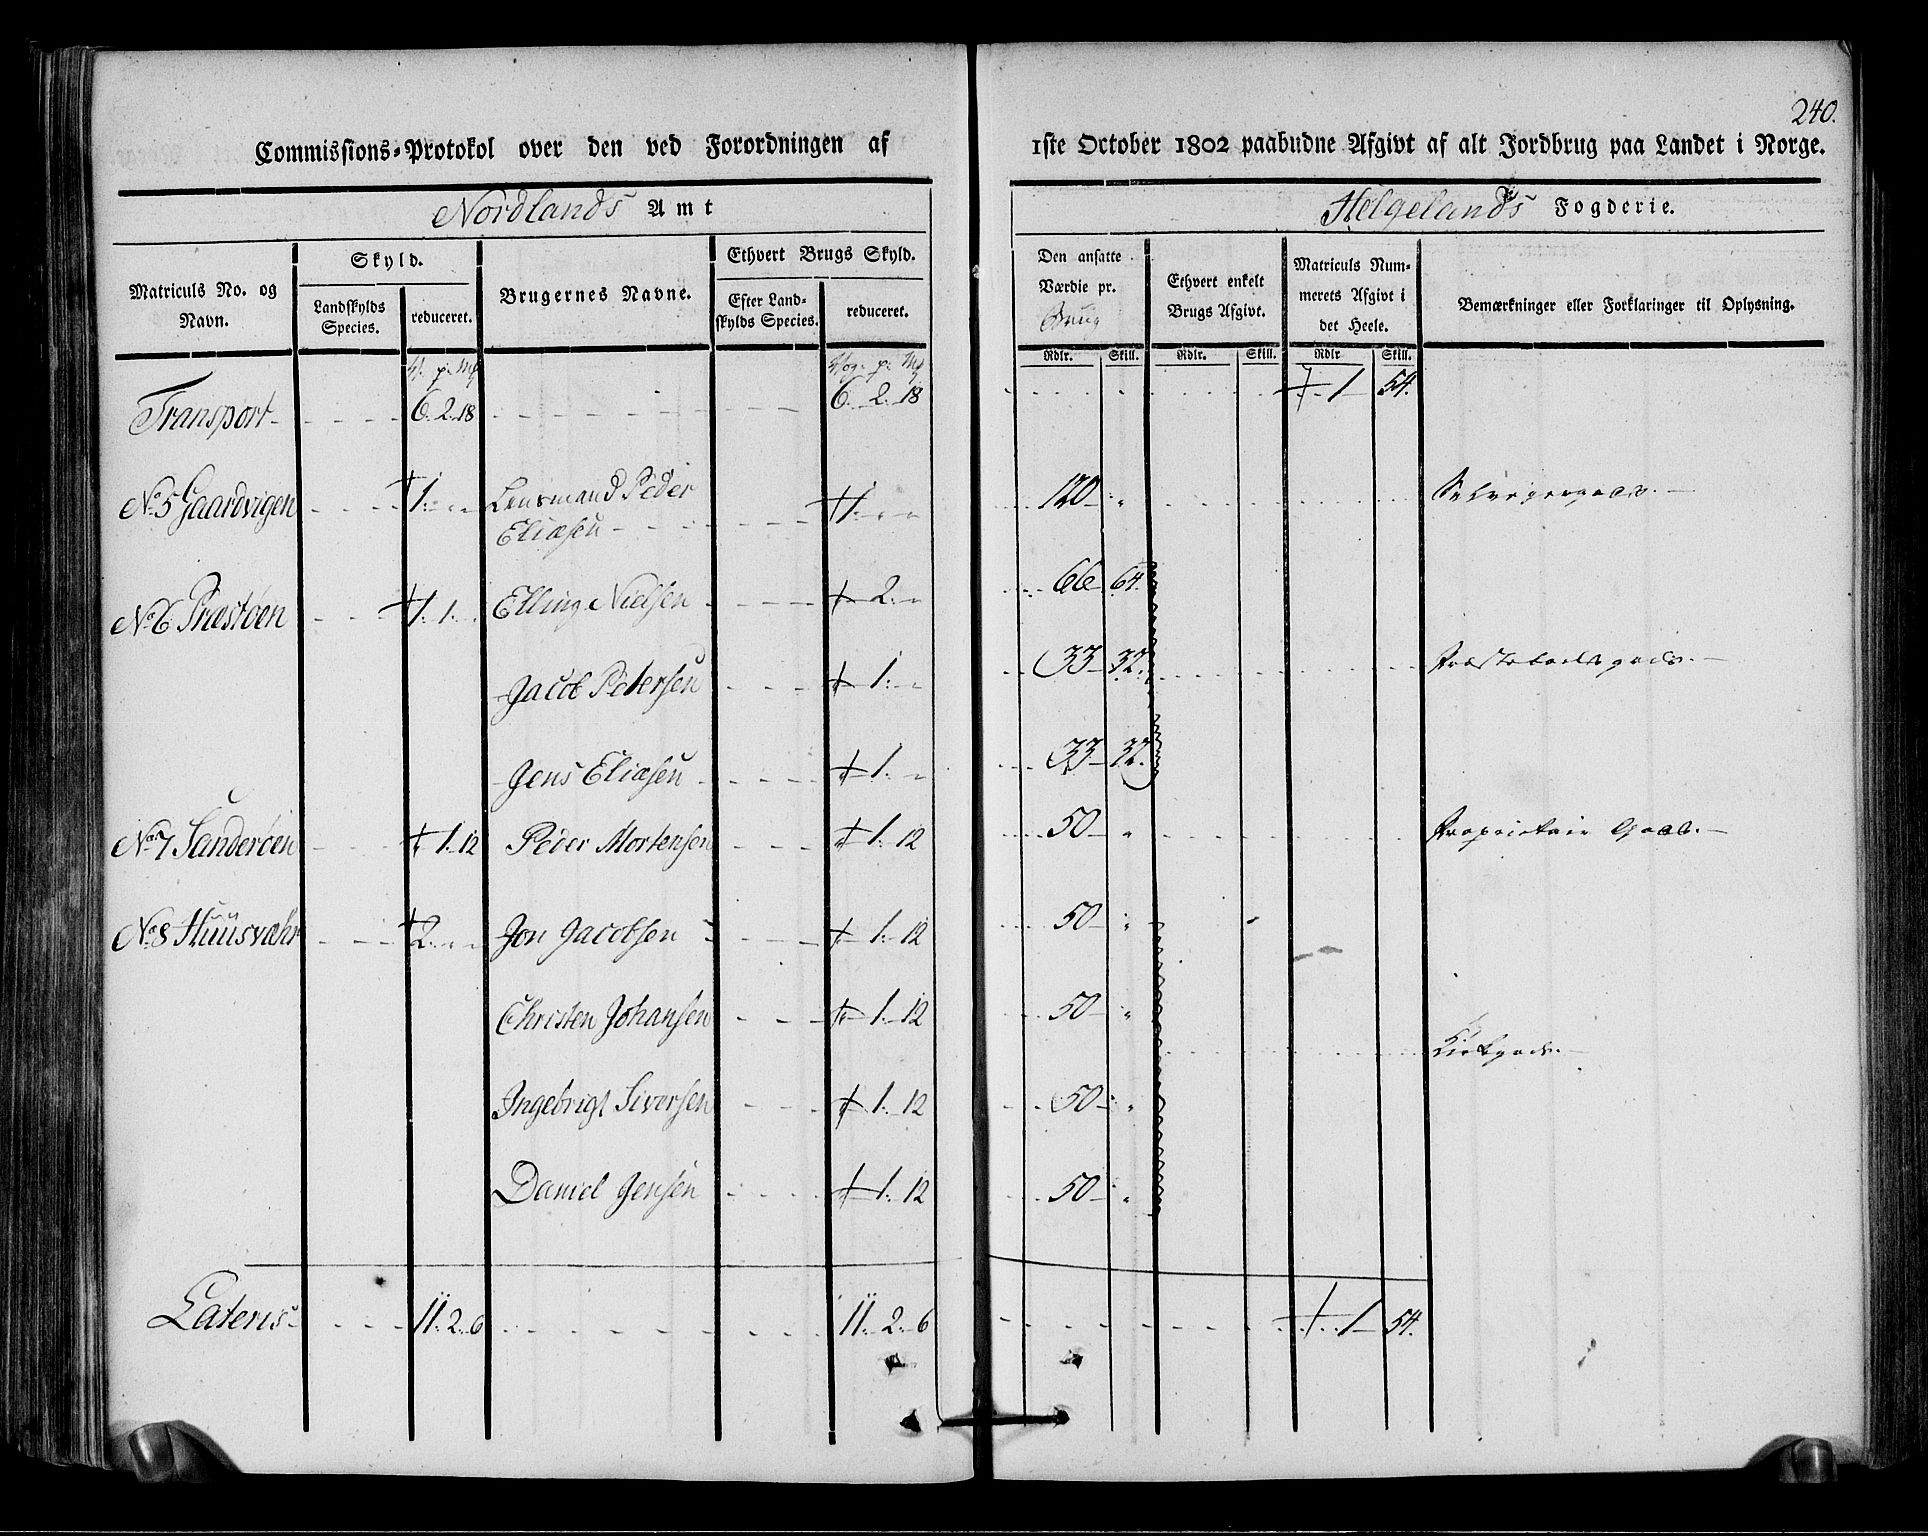 240.
Commissions-Protokol over den ved Forordningen af 1ste October 1802 paabudne Afgivt af alt Jordbrug paa Landet i Norge.
Nordlands Amt
Helgelands Fogderie.
Matriculs No. og Navn.
Skyld.
Landskylds Species.
reduceret.
Brugernes Navne.
Ethvert Brugs Skyld.
Efter Landskylds Species.
reduceret.
Den ansatte Værdie pr. Brug
Ethvert enkelt Brugs Afgivt.
Matriculs Nummerets Afgivt i det Heele.
Bemærkninger eller Forklaringer til Oplysning.
Rdlr. Skill. Rdlr. Skill. Rdlr Skill.
Transport 6. 2. 18 6. 2. 18 1 54.
No. 5 Gaardvigen 1. " " Lensmand Peder 1. " " 120 " Selveyergods.
Eliæsen
No. 6 Præstøen 1. 1. " Elling Nielsen 2. " 66 64.
Jacob Petersen 1. " 33 32. Præstebolsgods.
Jens Eliæsen 1. " 33 32.
No. 7 Sanderøen 1. 12 Peder Mortensen 1. 12 50 " Proprietair Gods.
No. 8 Huusvæhr 2. " " Jon Jacobsen 1. 12 50 "
Christen Johansen 1. 12 50 "
Kirkgods.
Ingebrigt Siversen 1. 12 50 "
Daniel Jensen 1. 12 50 "
Lateris 11. 2. 6 11. 2. 6 1 54.